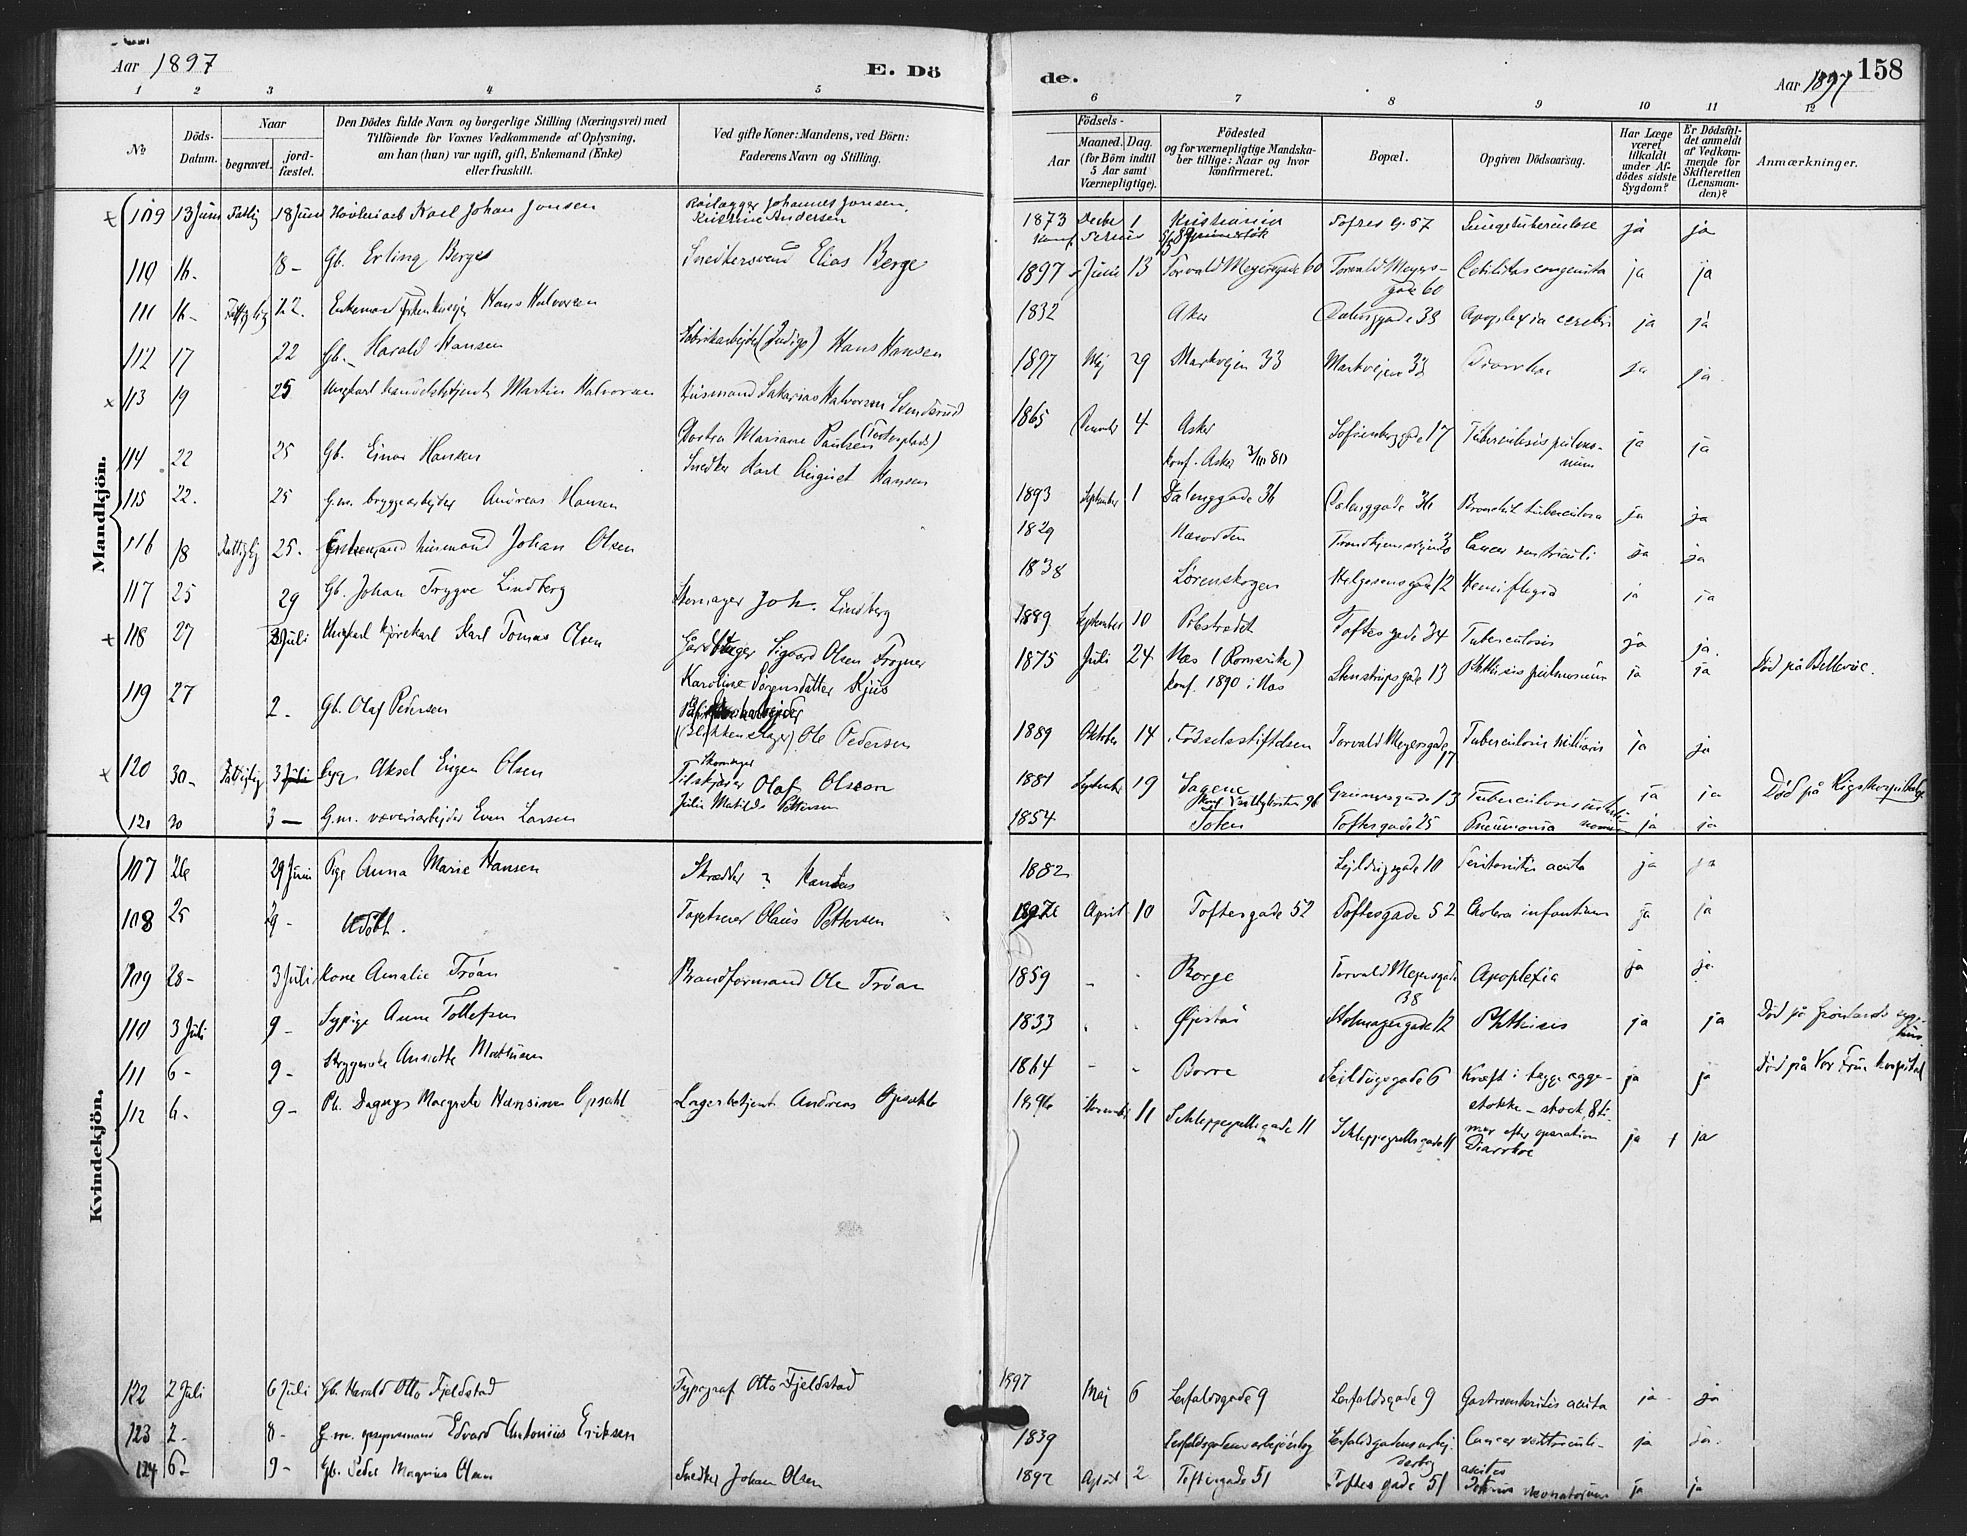 Aar 1897
E. Dö
de.
Aar 1897
158
1 2 3 4 5 6 7 8 9 10 11 12
No
Döds-Datum.
Naar
begravet.
jord-fæstet.
Den Dödes fulde Navn og borgerlige Stilling (Næringsvei) med
Tilföiende for Voxnes Vedkommende af Oplysning,
om han (hun) var ugift, gift, Enkemand (Enke)
eller fraskilt.
Ved gifte Koner: Mandens, ved Börn:
Faderens Navn og Stilling.
Födsels-
Aar
Maaned. Dag.
(for Börn indtil
5 Aar samt
Værnepligtige).
Födested
og for værnepligtige Mandska-
ber tillige: Naar og hvor
konfirmeret.
Bopæl.
Opgiven Dödsaarsag.
Har Læge
været
tilkaldt
under Af-
dödes sidste
Sygdom?
Er Dödsfal-
det anmeldt
af Vedkom-
mende for
Skifteretten
(Lensman-
den)?
Anmærkninger.
Mandkjön.
109 13 Juni Fattig 18 Juni Karl Johan Jonsen Johannes Jonsen, Andersen 1873 Decbr 1 Kristiania Tofres g. 57 Lungetuberculose ja ja
110 16- 18- Gb. Erling Berge Snedkersvend Elias Berge 1897 Juni 13 Torvald Meyersgade 60 Torvald Meyers-gade 60 Debilitas congenita ja ja
111 16- Fattiglig 22. Enkemand Hans Halvorsen 1832 Asker Dalenggade 38 Apoplexia cerebri ja ja
112 17 22 Gb. Harald Hansen Fabrikarbejder (Indigo) Hans Hansen 1897 Maj 29 Markvejen 33 Markvejen 33 Diarrhoe ja ja.
113 19 25 Ungkarl handelsbetjent Martin Halvorsen Husmand Sakarias Halvorsen 1865 December 4 Asker Sofienberggade 17 Tuberculosis pulmo-num ja ja
Dortea Mariane Paulsen konf. Asker 80
114 22 25 Gb. Einar Hansen Snedker Karl August Hansen 1893 September 1 Dalenggade 36 Dalenggade 36 Bronchit tuberculosa ja ja
115 22. 25 G.m. bryggearbejder Andreas Hansen 1829 Næsodden Cancer ventriculi ja ja
116 18 Fattiglig 25. Enkemand husmand Johan Olsen 1838 Lørenskogen Helgesensgade 12 Hemiplegia ja ja
117 25 29 Gb. Johan Trygve Lindberg Skomager Joh. Lindberg 1889 September 10 Pilestrædet Toftesgade 34 Tuberculosis ja ja.
118 27 3 Juli Ungkarl kjørekarl Karl Tomas Olsen Sigvard Olsen Frogner 1875 Juli 24 Næs (Romerike) Stenstrupsgade 13 Phthisis pulmonum ja ja Död på Bellevue.
Karoline Sørensdatter Kjus konf. 1890 i Næs
119 27 2- Gb. Olaf Pedersen (Blikkenslager) Ole Pedersen 1889 Oktober 14 Fødselsstiftelsen Torvald Meyersgade 17 Tuberculosis miliaris ja ja
120 30- Fattiglig 3 Juli Aksel Eugen Olsen Skomager Olaf Olsson 1881 September 19 Sagene Grünersgade 13 Tuberculosis ja ja Död på Rigshospitalet
Julie Matilde Pettersen
121 30 3- G.m. væveriarbejder Even Larsen 1854 Toten Toftesgade 25 Pneumonia ja ja
Kvindekjön.
107 26 29 Juni Pige Anna Marie Hansen Skrædder ? Hansen 1882 Sejldugsgade 10 Peritonitis acuta ja ja
108 25 29- Udøbt. Tapetserer Olaus Pettersen 1897 April 10 Toftesgade 52 Toftesgade 52 Cholera infantum ja ja
109 28- 3 Juli Kone Amalie Trøan Brandformand Ole Trøan 1859 - - Borge Torvald Meyersgade 38 Apoplexia ja ja
110 3 Juli 9- Sypige Anne Tollefsen 1833 - - Øjestad Stolmagergade 12 Phthisis ja ja Död på Grønlands syge-hus.
111 6- 9- Strygerske Ansette Mathisen 1864 - - Borre Sejldugsgade 6 Kræft i begge ægge-stokke - shock, 8 ti-mer efter operation ja ja Död på Vor Frue hospital
112 6- 9- Pb. Dagny Margrete Hansine Opsahl Lagerbetjent Andreas Opsahl 1896 November 11 Schleppegrellsgade 11 Schleppegrellsgade 11 Diarrhoe ja + ja
122 2 Juli 6 Juli Gb. Harald Otto Fjeldstad Typograf Otto Fjeldstad 1897 Maj 6 Leirfaldsgade 9 Leirfaldsgade 9 Gastroenteritis acuta ja ja
123 2- 8- G.m. Edvard Antonius Eriksen 1839 Cancer ventriculi- ascites ja ja.
124 6- 9- Gb. Peder Magnus Olsen Snedker Johan Olsen 1892 August 2 Toftesgade 51 Toftes gade 51 Tetanus neonatorum ja ja